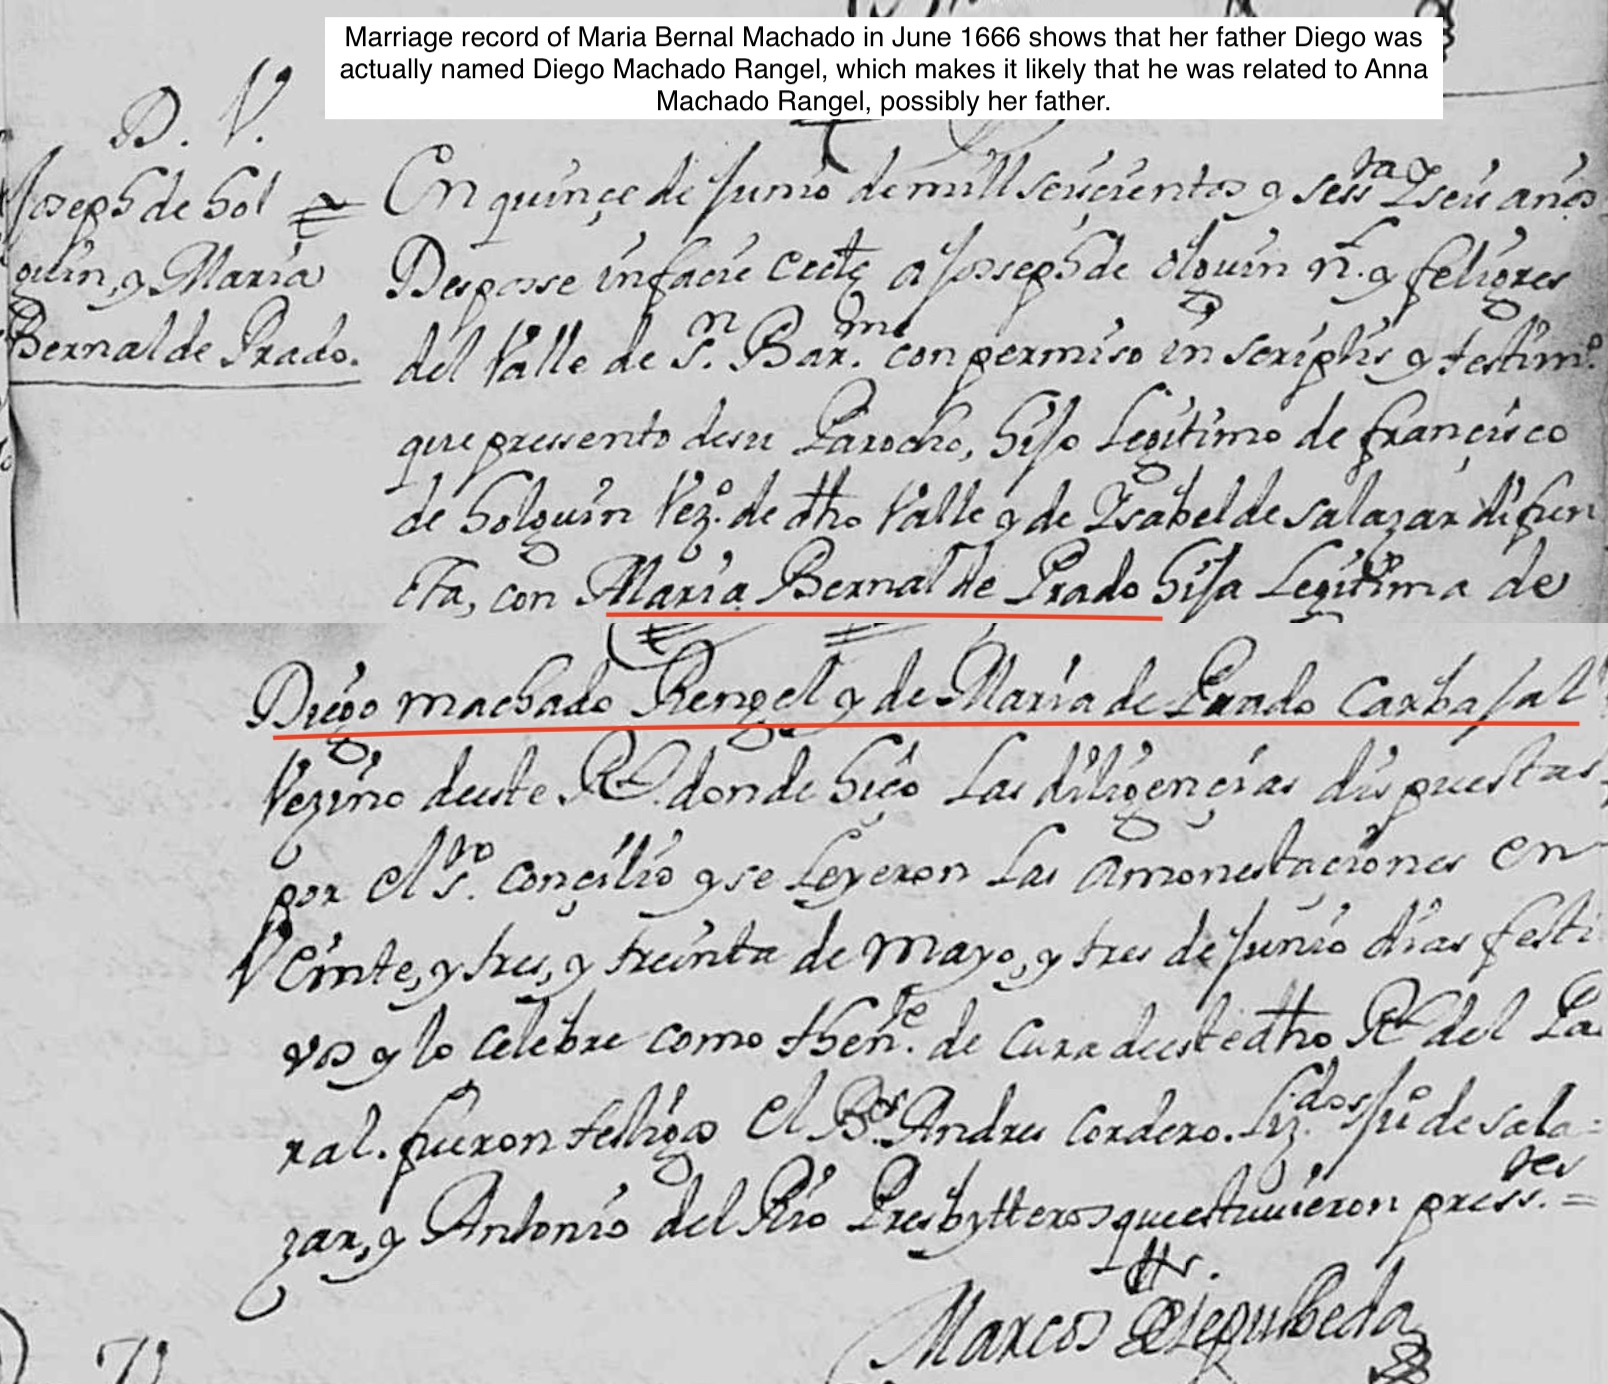 Marriage record of Maria Bernal Machado in June 1666 shows that her father Diego was
actually named Diego Machado Rangel, which makes it likely that he was related to Anna
Machado Rangel, possibly her father.
D. V.
Joseph de hol
guin, y Maria
Bernal de Prado.
En quinçe de Junio de mill seiscientos y sessta y seis años
Despose in facie eccle a Joseph de olguin n. y feligres
del Valle de S.n Bar.me con permiso in scriptis y testim.o
que pressento de su Parocho, hijo Legitimo de françisco
de holguin Vez.o de dho Valle y de Ysabel de salazar difun
ta, con Maria Bernal de Prado hija Legitima de
Diego machado Rengel y de Maria de Prado Carbajal
Vezino deeste Rl. donde hiço las diligençias dispuestas
por el s.to conçilio y se Leyeron Las amonestaciones en
Veinte, y tres, y treinta de mayo, y tres de Junio dias festi
vos y lo celebre como then.e de cura deeste dho Rl del Pa
ral. fueron testigos el B.r Andres Cordero. Liz.do Ju.o de sala=
zar, y Antonio del Rio Presbytteros que estuuieron press.tes =
Marcos Sepulbeda